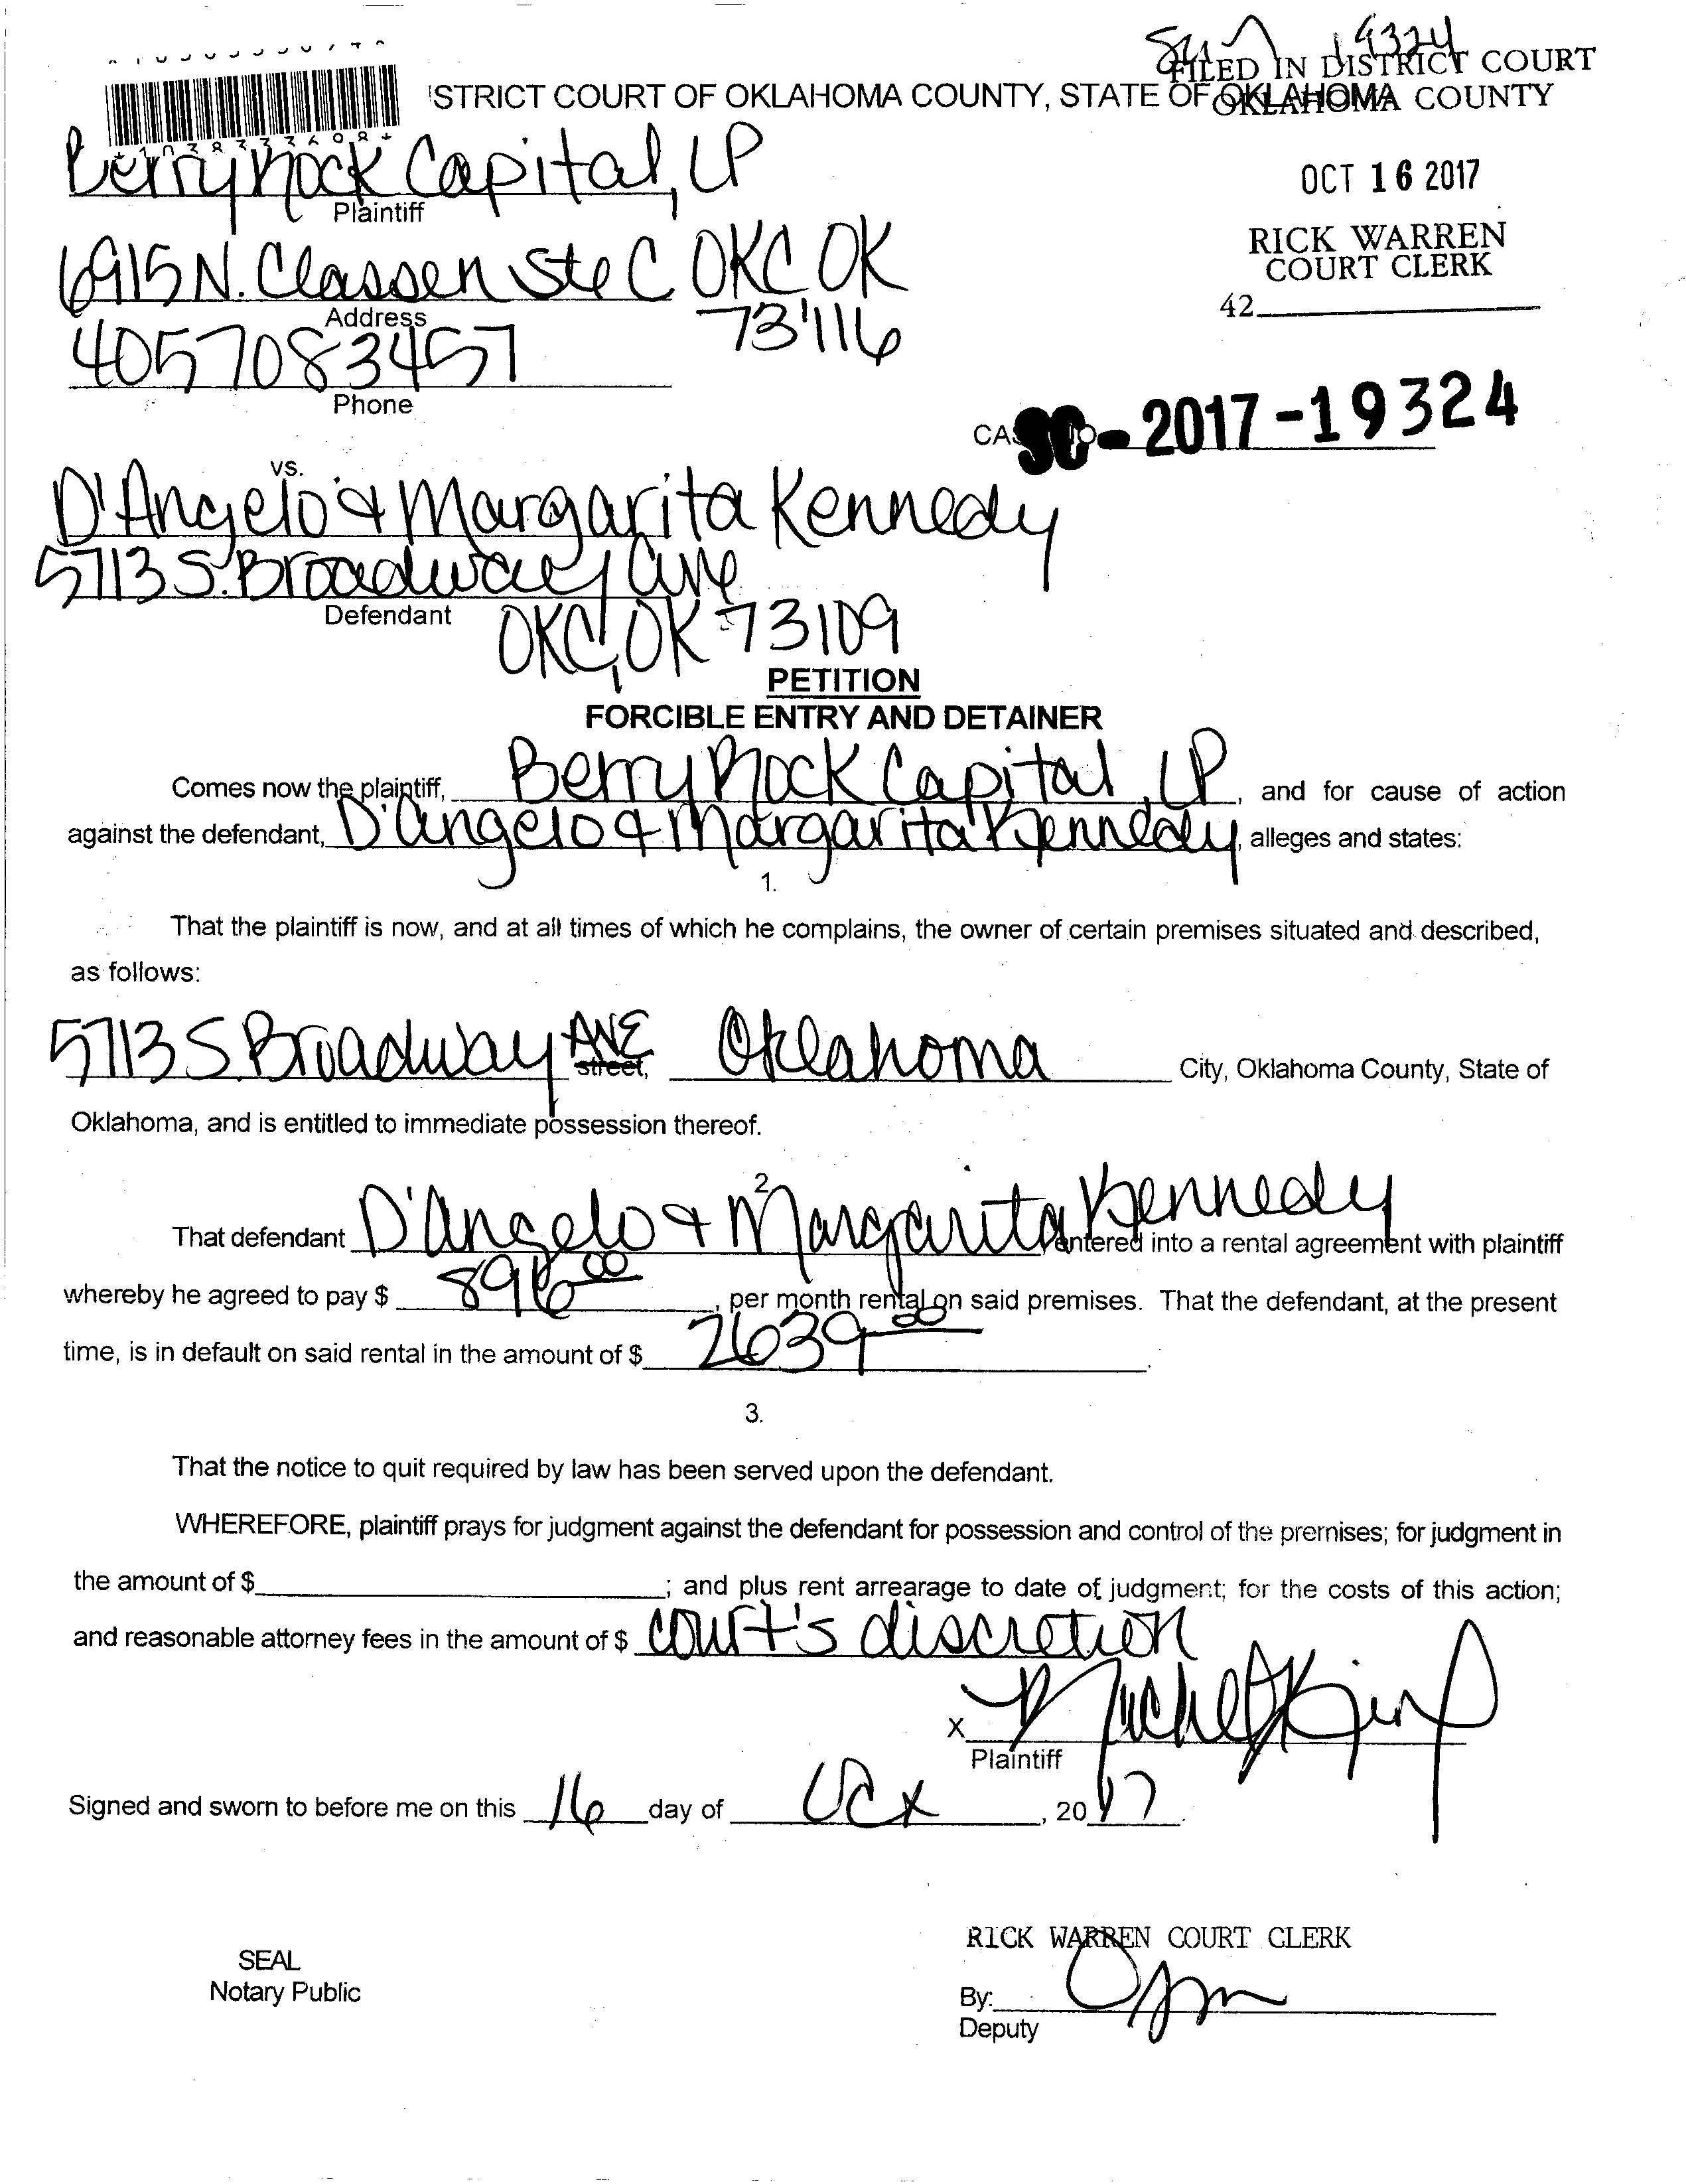 FILED IN DISTRICT COURT
STRICT COURT OF OKLAHOMA COUNTY, STATE OF OKLAHOMA COUNTY
OCT 16 2017
Berry Rock Capital, LP
Plaintiff
RICK WARREN
COURT CLERK
42
6915 N. Classen Ste C OKC OK
73116
Address
4057083457
Phone
SC-2017-19324
vs.
D'Angelo & Margarita Kennedy
5713 S. Broadway Ave
Defendant
OKC, OK 73109
PETITION
FORCIBLE ENTRY AND DETAINER
Comes now the plaintiff, Berry Rock Capital, LP, and for cause of action
against the defendant, D'Angelo & Margarita Kennedy, alleges and states:
1.
That the plaintiff is now, and at all times of which he complains, the owner of certain premises situated and described,
as follows:
5713 S. Broadway AVE street, Oklahoma City, Oklahoma County, State of
Oklahoma, and is entitled to immediate possession thereof.
2.
That defendant D'Angelo & Margarita Kennedy entered into a rental agreement with plaintiff
whereby he agreed to pay $ 896.00, per month rental on said premises. That the defendant, at the present
time, is in default on said rental in the amount of $ 2639.00.
3.
That the notice to quit required by law has been served upon the defendant.
WHEREFORE, plaintiff prays for judgment against the defendant for possession and control of the premises; for judgment in
the amount of $ ; and plus rent arrearage to date of judgment; for the costs of this action;
and reasonable attorney fees in the amount of $ court's discretion
X
Plaintiff
Signed and sworn to before me on this 16 day of Oct, 2017.
RICK WARREN COURT CLERK
SEAL
Notary Public
By:
Deputy